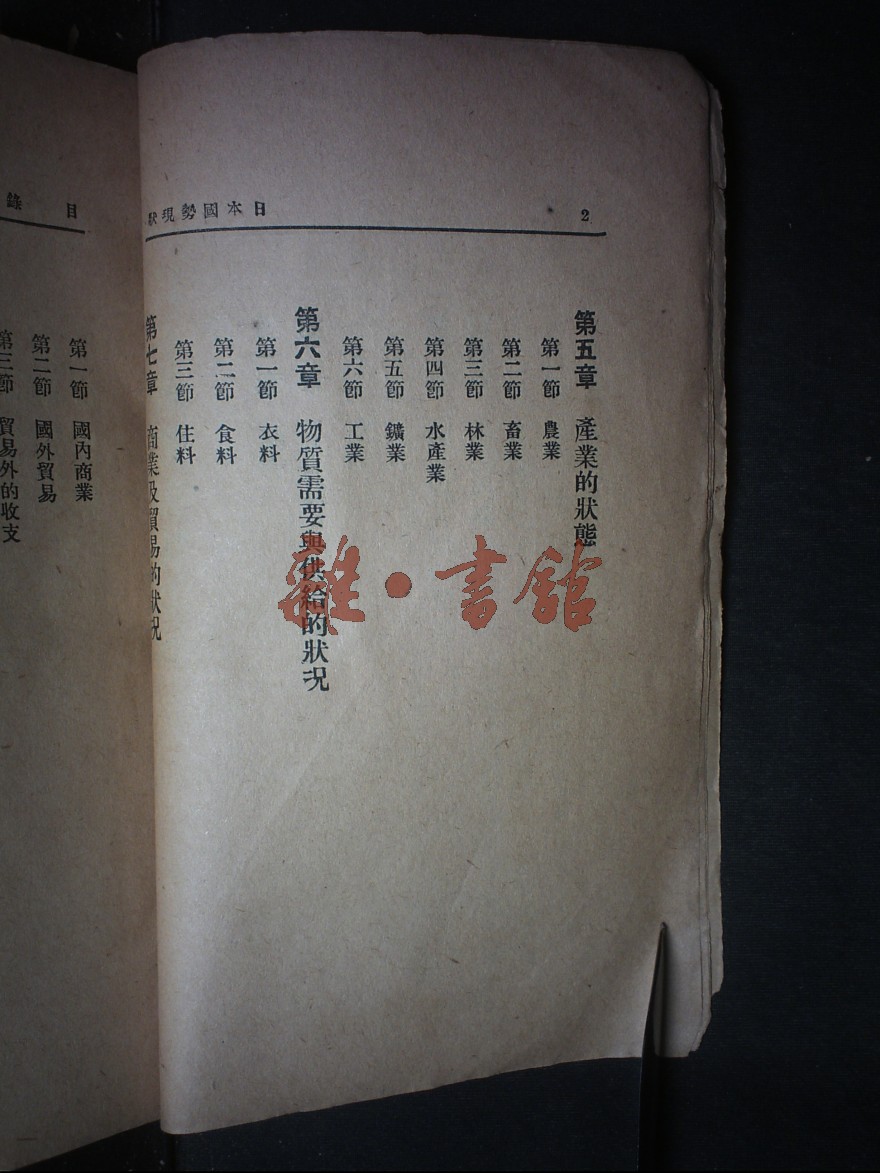 日本國勢現狀
2
第五章 產業的狀態
第一節 農業
第二節 畜業
第三節 林業
第四節 水產業
第五節 鑛業
第六節 工業
第六章 物質需要與供給的狀況
第一節 衣料
第二節 食料
第三節 住料
第七章 商業及貿易的狀況
目錄
第一節 國內商業
第二節 國外貿易
第三節 貿易外的收支
雜·書館